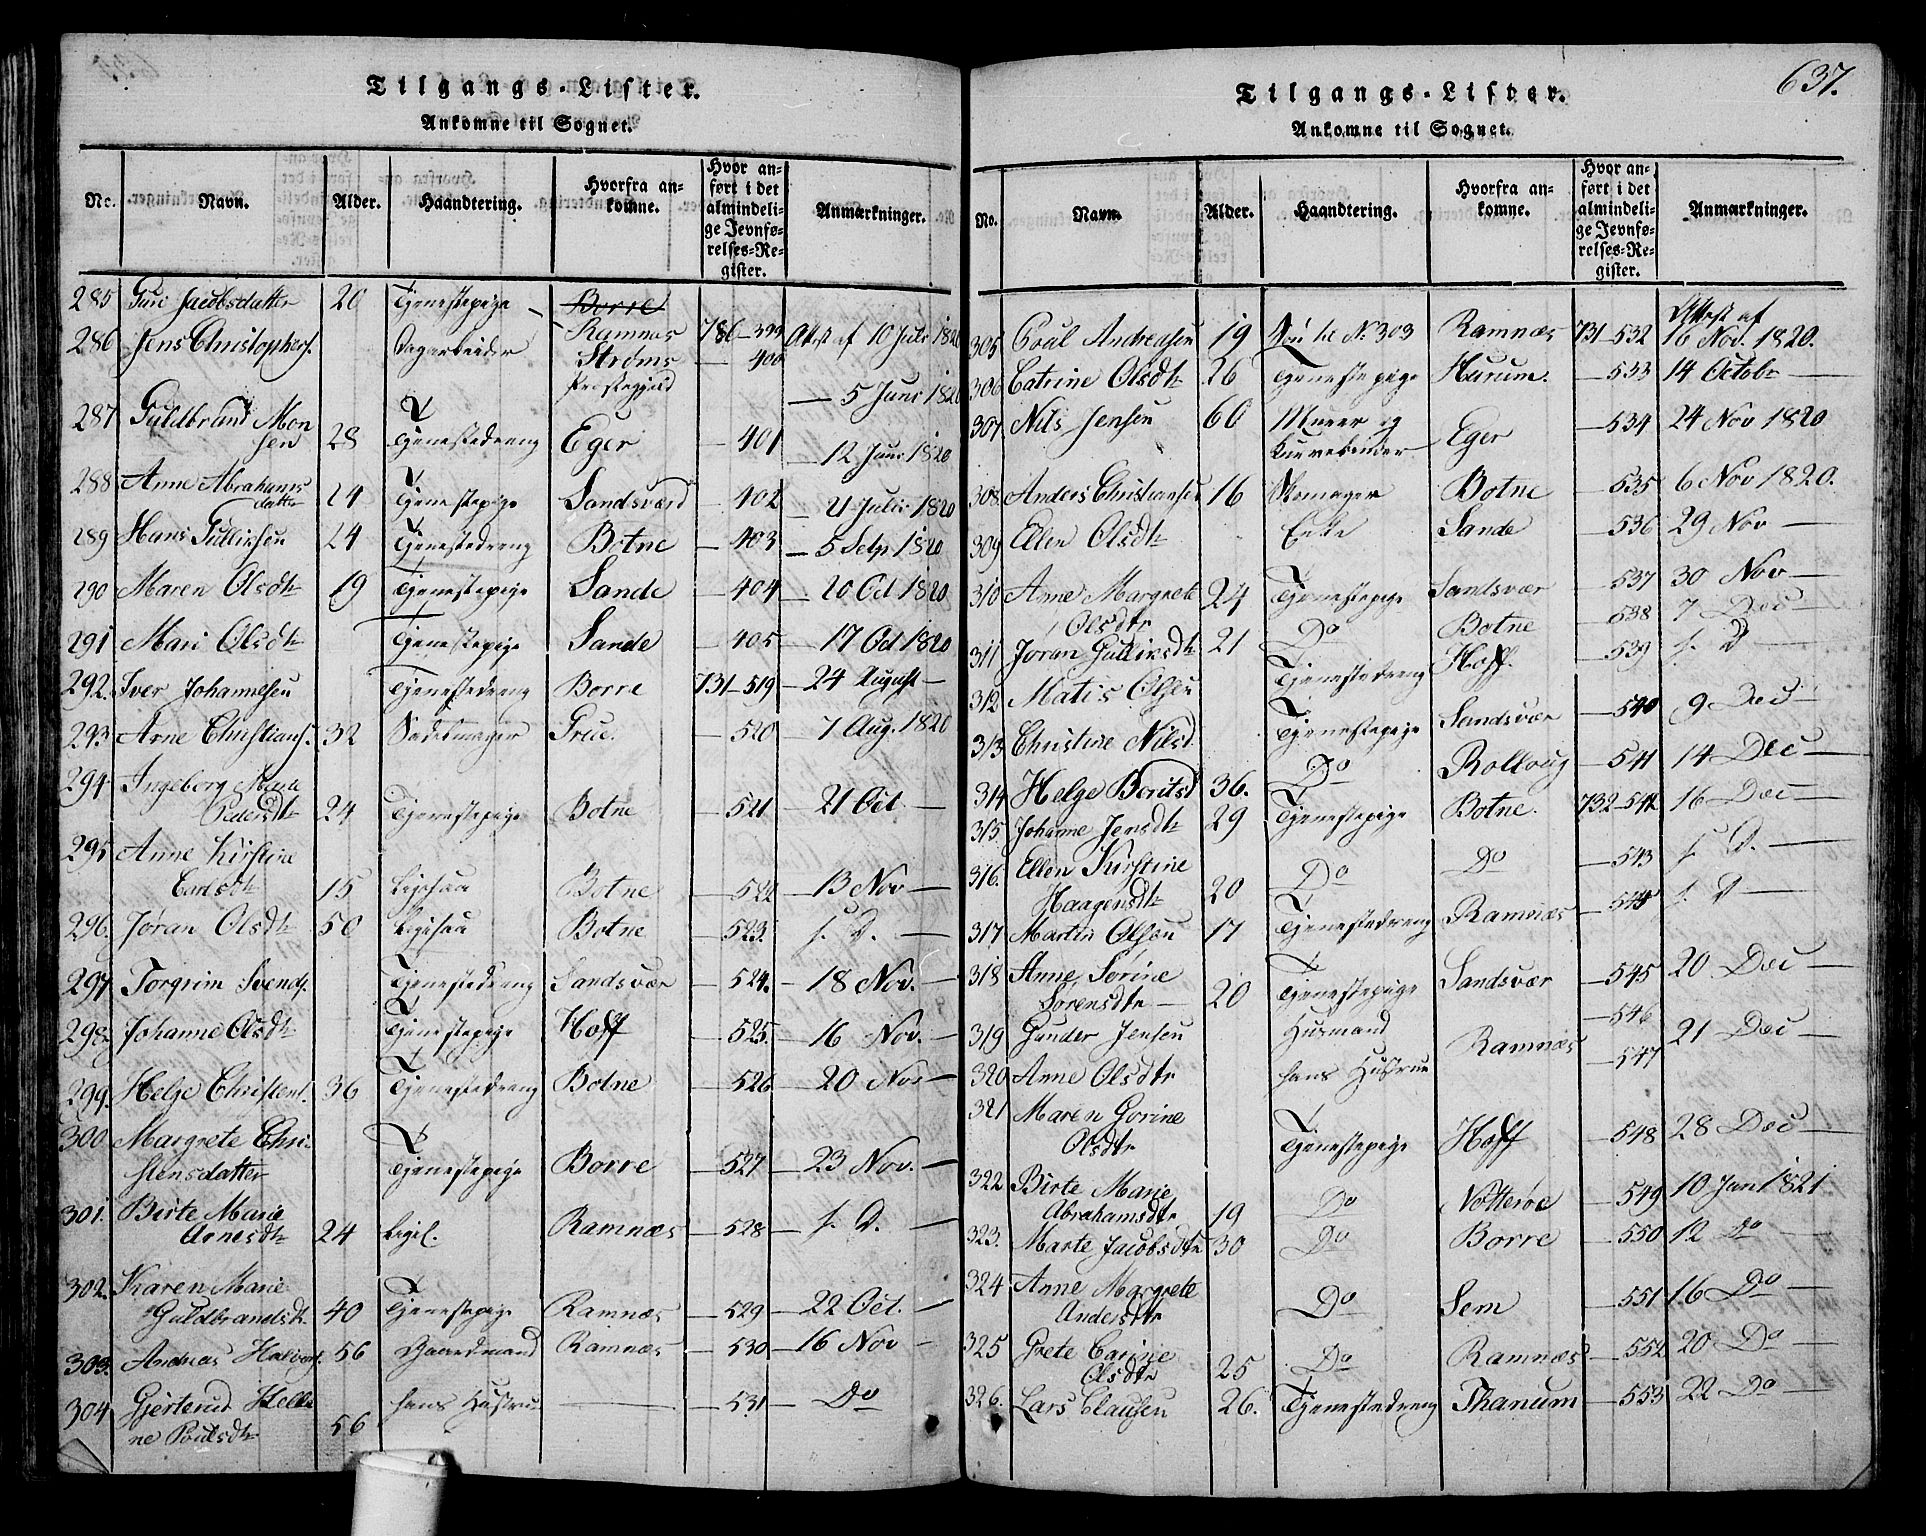 Tilgangs-Lister.
Ankomne til Sognet.
No. Navn. Alder. Haandtering. Hvorfra ankomne. Hvor anført i det almindelige Jevnførelses-Register. Anmærkninger.
285 Guri Jacobsdatter 20 Tjenestepige Borre
Ramnæs 786-399 Attest af 10 Juli 1820
286 Jens Christophers. Dagarbeider Strøms Præstegjeld — 400 — 5 Juni 1820
287 Guldbrand Monsen 28 Tjenestedreng Eger — 401 — 12 Juni 1820
288 Anne Abrahamsdatter 24 Tjenestepige Sandsværd — 402 — 21 Julii 1820
289 Hans Gullichsen 24 Tjenestedreng Botne — 403 — 5 Sep 1820
290 Maren Olsdtr 19 Tjenestepige Sande — 404 — 20 Oct 1820
291 Mari Olsdtr Tjenestepige Sande — 405 — 17 Oct 1820
292. Iver Johannesen Tjenestedreng Borre 731-519 — 24 August —
293. Arne Christians. 32 Sadelmager Grue. — 520 — 7 Aug. 1820
294. Ingeborg Marie
Pedersdtr 24 Tjenestepige Botne — 521 — 21 Oct —
295 Anne Kirstine
Carlsdtr 15 Ligesaa Botne — 522 — 13 Nov —
296. Jøran Olsdtr 50 Ligesaa Botne — 523. s. D. —
297 Torgrim Svends. Tjenestedreng Sandsvær — 524. — 18 Nov. —
298 Johanne Olsdtr Tjenestepige Hoff — 525. — 16 Nov. —
299. Helge Christens. 36 Tjenestedreng Botne — 526 — 20 Nov —
300. Margrete Chri-
stensdatter Tjenestepige Borre — 527 — 23 Nov. —
301. Birte Marie
Arnesdtr 24 Ligel. Ramnæs — 528 — s. D. —
302. Karen Marie
Guldbrandsdtr 40 Tjenestepige Ramnæs — 529 — 22 Oct. —
303. Andreas Halvors. 56 Gaardmand Ramnæs — 530 — 16 Nov —
304 Gjertrud Helle-
ne Poulsdtr 56 hans Hustrue — 531 — Do
637.
Tilgangs-Lister.
Ankomne til Sognet.
No. Navn. Alder. Haandtering. Hvorfra ankomne. Hvor anført i det almindelige Jevnførelses-Register. Anmærkninger.
305 Poul Andreasen 19 Søn til No 303 Ramnæs 731-532 Attest af 16 Nov. 1820.
306 Catrine Olsdtr 26 Tjenestepige Hurum. — 533 14 Octobr —
307. Nils Jensen 60 Muurer og Eger — 534 24 Nov 1820
308. Anders Christiansen 16 Skomager Botne — 535 6 Nov 1820.
309 Ellen Olsdtr Enke Sande — 536 29 Nov —
310 Anne Margrete
Olsdtr 24 Tjenestepige Sandsvær — 537 30 Nov —
311 Jøran Gulliksdtr 21 Do Botne — 538 7 Dec —
312 Matis Olsen Tjenestedreng Hoff. — 539 s. D —
313 Christine Nilsd. Tjenestepige Sandsvær — 540 9 Dec —
314 Helge Boutsd 36. Do Rolloug — 541 14 Dec —
315 Johanne Jensdtr 29 Tjenestepige Botne. 732-542 16 Dec —
316. Ellen Kirstine
Haagensdtr 20 Do Do — 543 s. D. —
317 Martin Olsen 17 Tjenestedreng Ramnæs — 544 s. D —
318 Anne Sørine
Sørensdtr — 20 Tjenestepige Sandsvær — 545 20 Dec —
319 Gunder Jensen Husmand Ramnæs — 546 21 Dec —
320 Anne Olsdtr hans Hustrue — 547
321 Maren Gorine
Olsdtr Tjenestepige Hoff — 548 28 Dec —
322 Birte Marie
Abrahamsdtr 19 Do Nøtterøe — 549 10 Jan 1821
323. Marte Jacobsdtr 30 Do Borre — 550 12 Do
324 Anne Margrete
Andersdtr Do Sem — 551 16 Do —
325 Grete Carine
Olsdtr 25 Do Ramnæs — 552 20 Do —
326. Lars Clausen 26. Tjenestedreng Thanum — 553 22 Do —